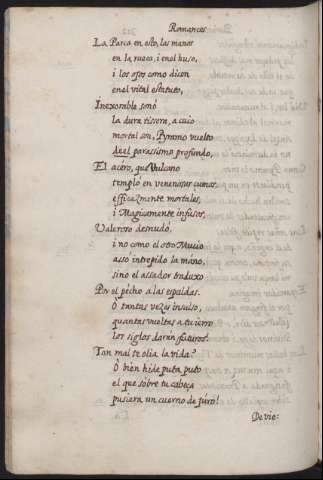 Romances
La Parca en esto, las manos
en la rueca, i en el huso,
i los ojos como dicen
en el vital estatuto,
Inexorable sonó
la dura tissera, a cuio
mortal son, Pyramo vuelto
del parasismo profundo,
El acero, que Vulcano
templó en venenosos çumos,
efficazmente mortales,
i Magicamente infusos,
Valeroso desnudó,
i no como el otro Mucio
assó intrepido la mano,
sino el assador traduxo
Por el pecho a las espaldas.
O tantas vezes insulso,
quantas vueltas a tu ierro
los siglos daran futuros!
Tan mal te olia la vida?
O bien hi de puta puto
el que sobre tu cabeça
pusiera un cuerno de juro!
De vio: